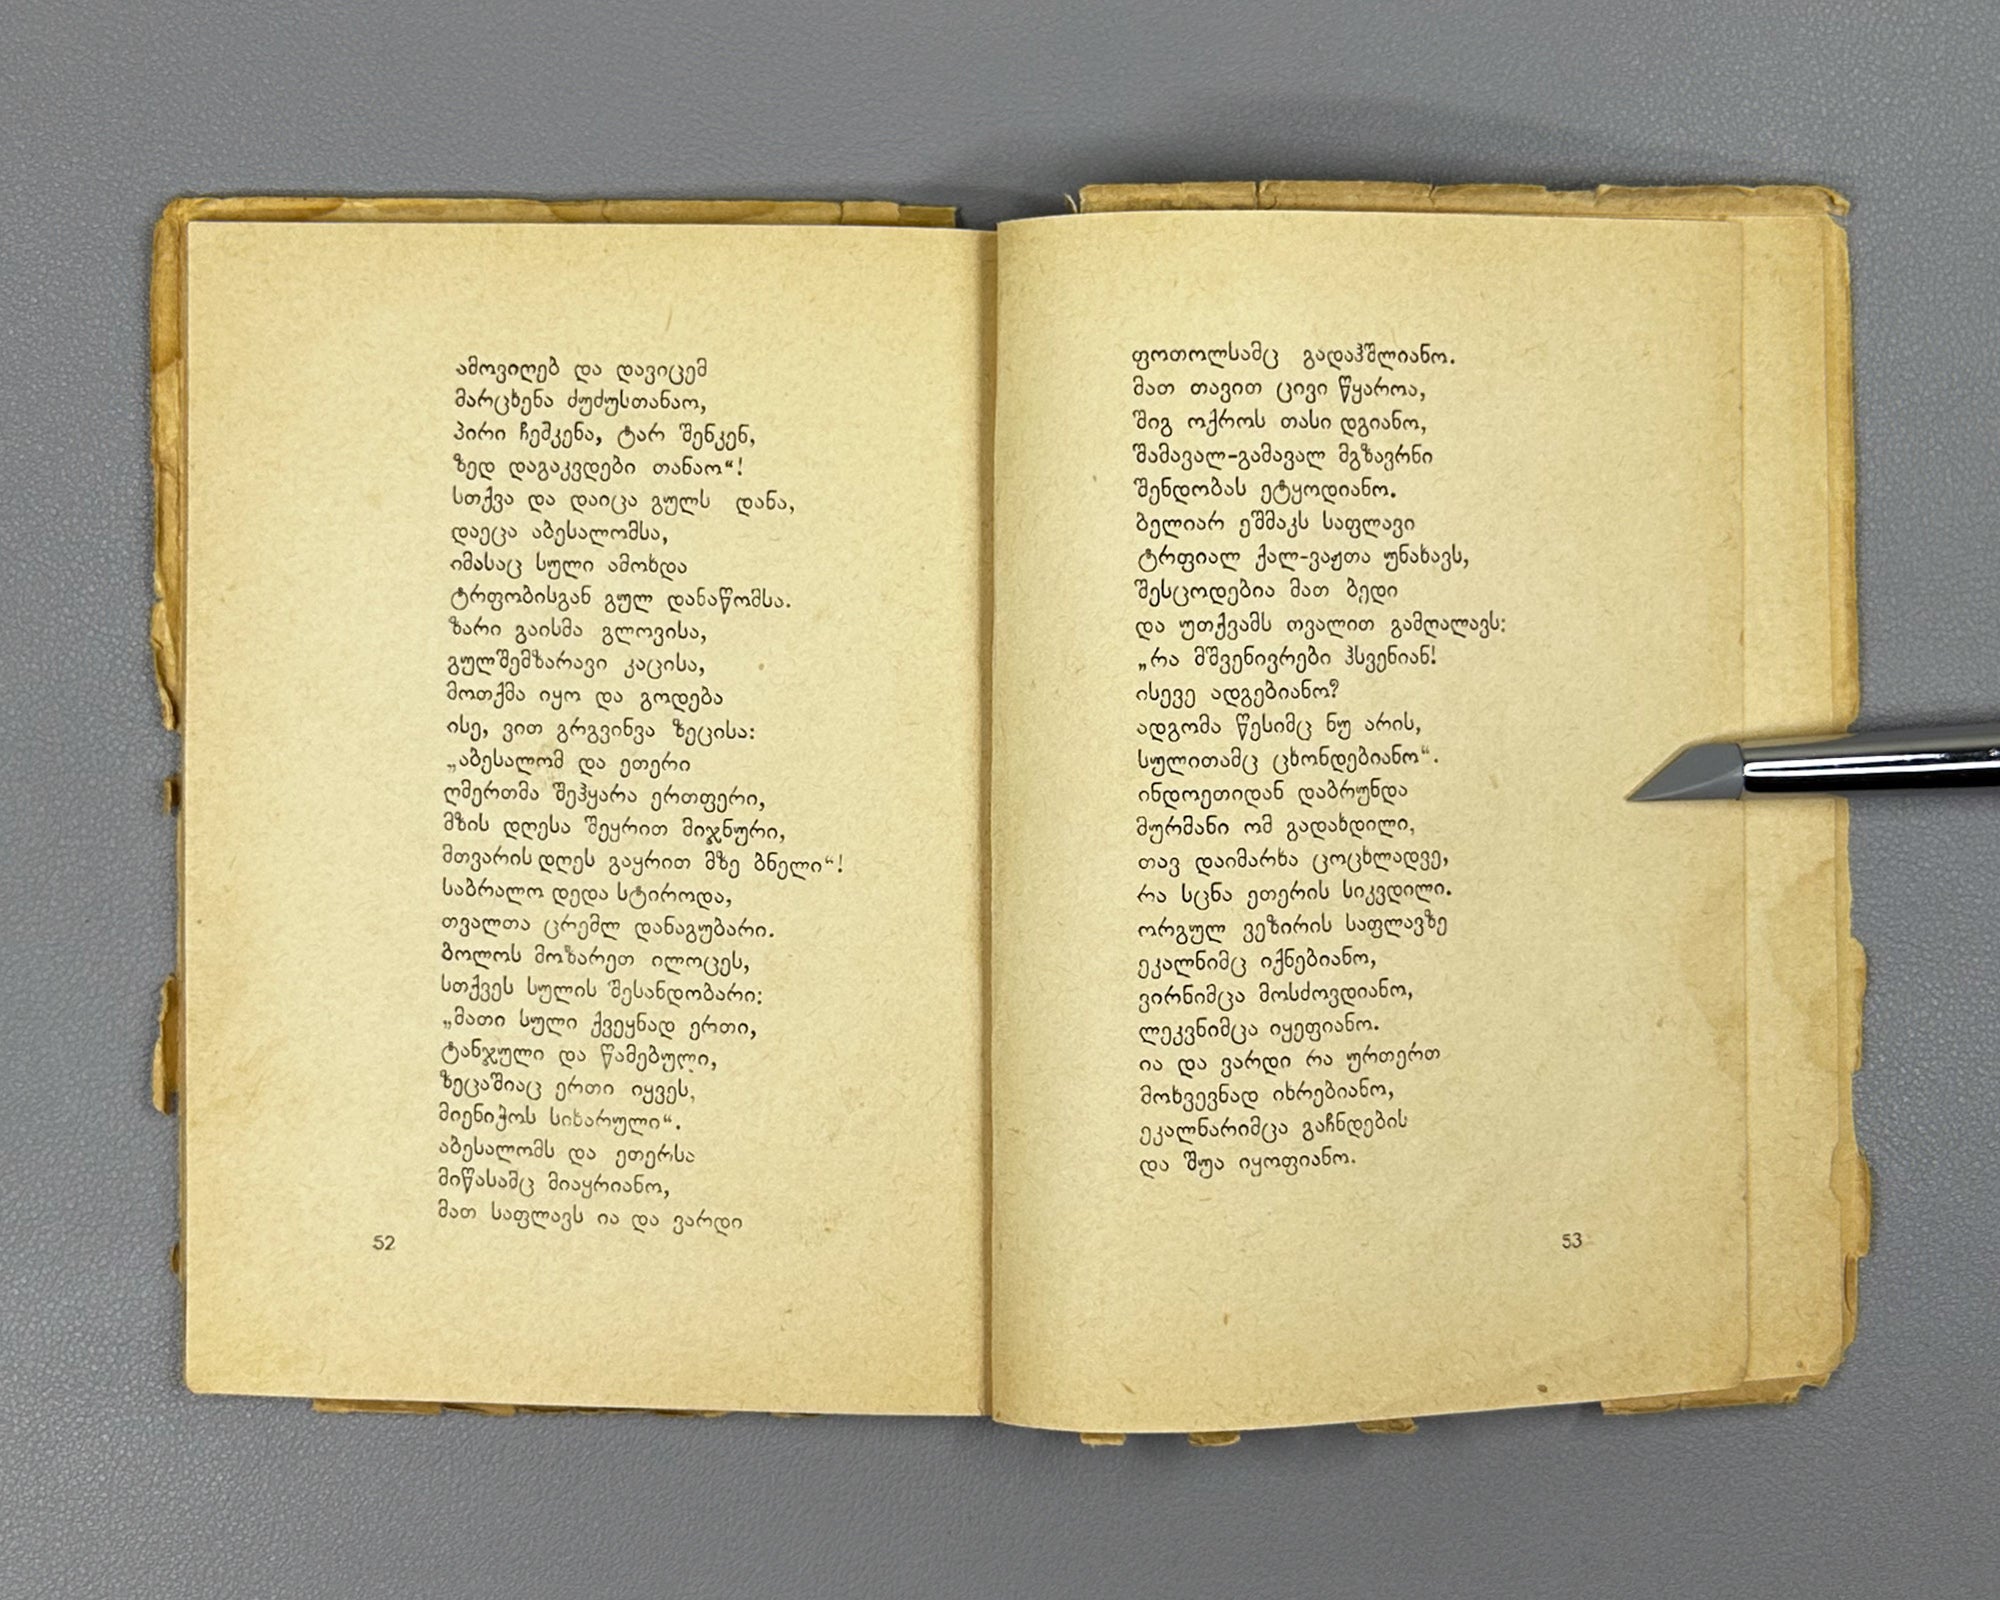 ამოვიღებ და დავიცემ
მარცხენა ძუძუსთანაო,
პირი ჩემკენა, ტარ შენკენ,
ზედ დაგაკვდები თანაო“!
სთქვა და დაიცა გულს დანა,
დაეცა აბესალომსა,
იმასაც სული ამოხდა
ტრფობისგან გულ დანაწომსა.
ზარი გაისმა გლოვისა,
გულშემზარავი კაცისა,
მოთქმა იყო და გოდება
ისე, ვით გრგვინვა ზეცისა:
„აბესალომ და ეთერი
ღმერთმა შეჰყარა ერთფერი,
მზის დღესა შეყრით მიჯნური,
მთვარის დღეს გაყრით მზე ბნელი“!
საბრალო დედა სტიროდა,
თვალთა ცრემლ დანაგუბარი.
ბოლოს მოზარეთ ილოცეს,
სთქვეს სულის შესანდობარი:
„მათი სული ქვეყნად ერთი,
ტანჯული და წამებული,
ზეცაშიაც ერთი იყვეს,
მიენიჭოს სიხარული“.
აბესალომს და ეთერსა
მიწასამც მიაყრიანო,
მათ საფლავს ია და ვარდი
52
ფოთოლსამც გადაჰშლიანო.
მათ თავით ცივი წყაროა,
შიგ ოქროს თასი დგიანო,
შამავალ-გამავალ მგზავრნი
შენდობას ეტყოდიანო.
ბელიარ ეშმაკს საფლავი
ტრფიალ ქალ-ვაჟთა უნახავს,
შესცოდებია მათ ბედი
და უთქვამს თვალით გამღალავს:
„რა მშვენივრები ჰსვენიან!
ისევე ადგებიანო?
ადგომა წესიმც ნუ არის,
სულითამც ცხონდებიანო“.
ინდოეთიდან დაბრუნდა
მურმანი ომ გადახდილი,
თავ დაიმარხა ცოცხლადვე,
რა სცნა ეთერის სიკვდილი.
ორგულ ვეზირის საფლავზე
ეკალნიმც იქნებიანო,
ვირნიმცა მოსძოვდიანო,
ლეკვნიმცა იყეფიანო.
ია და ვარდი რა ურთერთ
მოხვევნად იხრებიანო,
ეკალნარიმცა გაჩნდების
და შუა იყოფიანო.
53